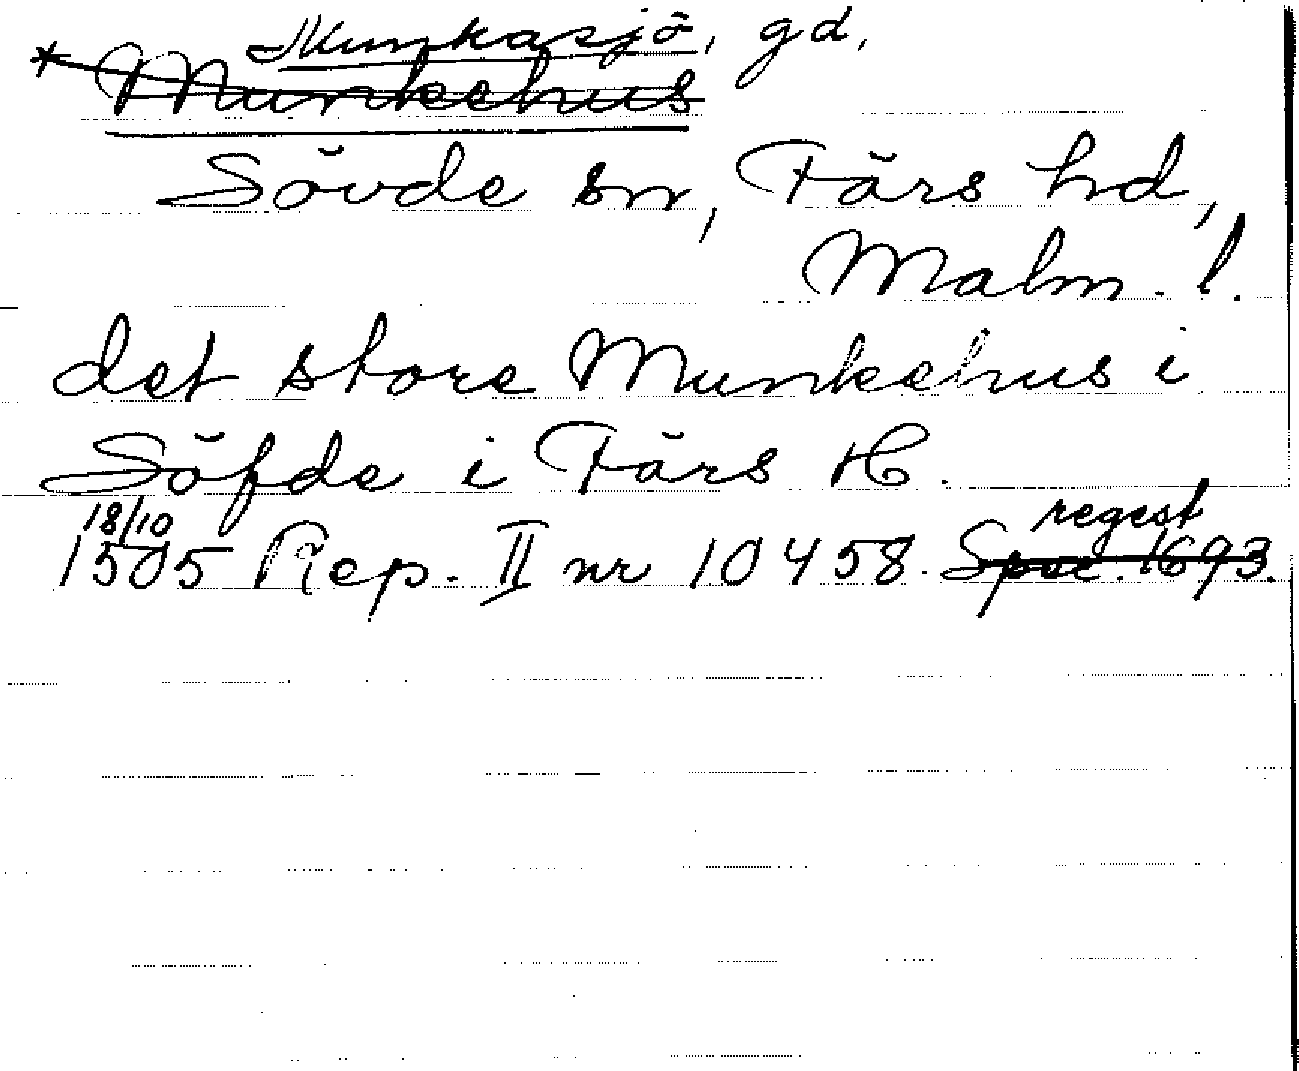 Munkasjö, gd,
* Munkehus
Sövde sn, Färs hd,
Malm. l.
det store Munkehus i
Söfde i Färs H.
18/10 regest
1505 Rep. II nr 10458. Spec. 1693.